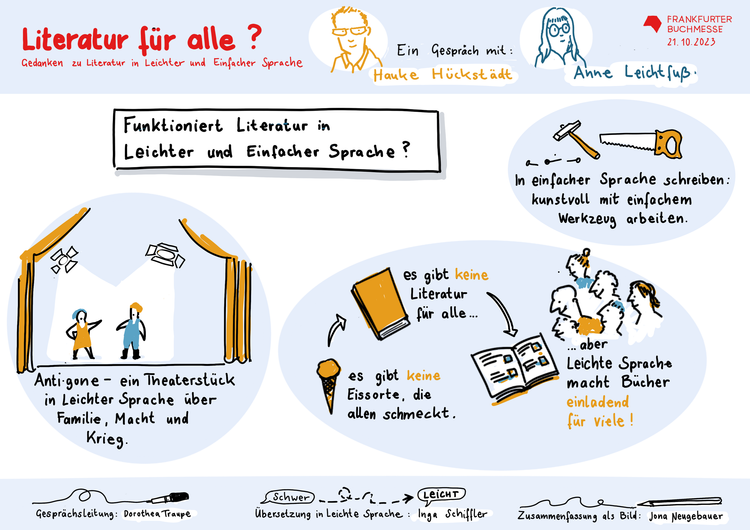 Literatur für alle ?
Gedanken zu Literatur in Leichter und Einfacher Sprache
Ein Gespräch mit:
Hauke Hückstädt
Anne Leichtfuß.
FRANKFURTER
BUCHMESSE
21.10.2023
Funktioniert Literatur in
Leichter und Einfacher Sprache?
In einfacher Sprache schreiben:
kunstvoll mit einfachem
Werkzeug arbeiten.
Anti-gone – ein Theaterstück
in Leichter Sprache über
Familie, Macht und
Krieg.
es gibt keine
Literatur
für alle...
es gibt keine
Eissorte, die
allen schmeckt.
...aber
Leichte Sprache
macht Bücher
einladend
für viele!
Gesprächsleitung: Dorothea Traupe
Schwer
LEICHT
Übersetzung in Leichte Sprache: Inga Schiffler
Zusammenfassung als Bild: Jona Neugebauer